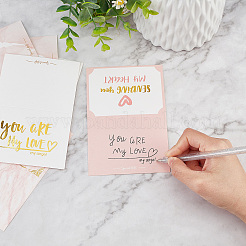 you ARE
My LOVE
SENDING you
MY HEART
you ARE
My LOVE